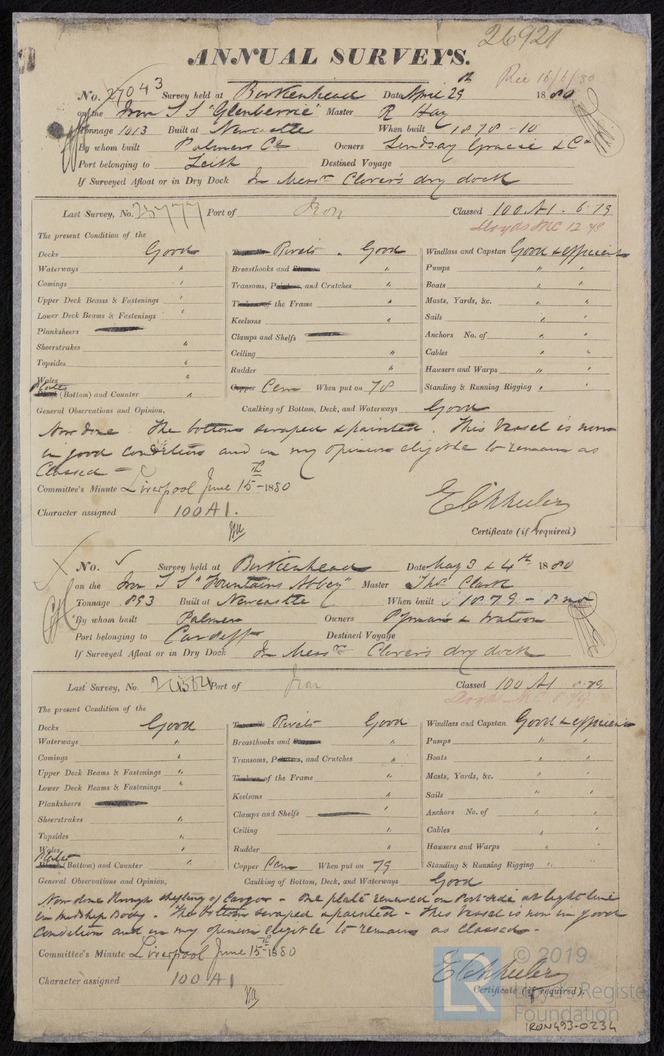 26921
ANNUAL SURVEYS.
No. 27043 Survey held at Birkenhead Date April 29th 1880 Rec 16/6/80
on the Iron S S "Glenberrie" Master R Hay
Tonnage 1013 Built at Newcastle When built 1878-10
By whom built Palmers Co Owners Lindsay Gracie & Co
Port belonging to Leith Destined Voyage
If Surveyed Afloat or in Dry Dock In Messrs Clover's dry dock
Last Survey, No. 25777 Port of Iron Classed 100 A1. 6.79
Lloyds MC 12 78
The present Condition of the
Decks Good Rivets Good Windlass and Capstan Good & efficient
Waterways " Breasthooks and " Pumps " "
Comings " Transoms, and Crutches " Boats " "
Upper Deck Beams & Fastenings " of the Frame " Masts, Yards, &c. " "
Lower Deck Beams & Fastenings " Keelsons " Sails " "
Planksheers Clamps and Shelfs Anchors No. of " "
Sheerstrakes " Ceiling " Cables " "
Topsides " Rudder " Hawsers and Warps " "
Wales Copper Cem When put on 78 Standing & Running Rigging " "
Plates (Bottom) and Counter "
General Observations and Opinion, Caulking of Bottom, Deck, and Waterways Good
Now done The bottom scraped & painted. This Vessel is now
in good condition and in my opinion eligible to remain as
Classed
Committee's Minute Liverpool June 15th 1880
Character assigned 100 A1.
Certificate (if required)
No. Survey held at Birkenhead Date May 3 & 4th 1880
on the Iron S S "Fountains Abbey" Master Thos Clark
Tonnage 893 Built at Newcastle When built 1879 - 8 mo
By whom built Palmers Owners Pyman & Watson
Port belonging to Cardiff Destined Voyage
If Surveyed Afloat or in Dry Dock In Messrs Clover's dry dock
Last Survey, No. Port of Iron Classed 100 A1
The present Condition of the
Decks Good Rivets Good Windlass and Capstan Good & efficient
Waterways " Breasthooks and " Pumps " "
Comings " Transoms, and Crutches " Boats " "
Upper Deck Beams & Fastenings " of the Frame " Masts, Yards, &c. " "
Lower Deck Beams & Fastenings " Keelsons " Sails " "
Planksheers Clamps and Shelfs Anchors No. of " "
Sheerstrakes " Ceiling " Cables " "
Topsides " Rudder " Hawsers and Warps " "
Wales Copper Cem When put on 79 Standing & Running Rigging " "
Plates (Bottom) and Counter "
General Observations and Opinion, Caulking of Bottom, Deck, and Waterways Good
Now done through shifting of Cargo - One plate renewed on Port side at light line
in midship body. The bottom scraped & painted - This Vessel is now in good
Condition and in my opinion eligible to remain as classed -
Committee's Minute Liverpool June 15th 1880
Character assigned 100 A1
Certificate (if required).
© 2019
Lloyd's Register
Foundation
IRON493-0234